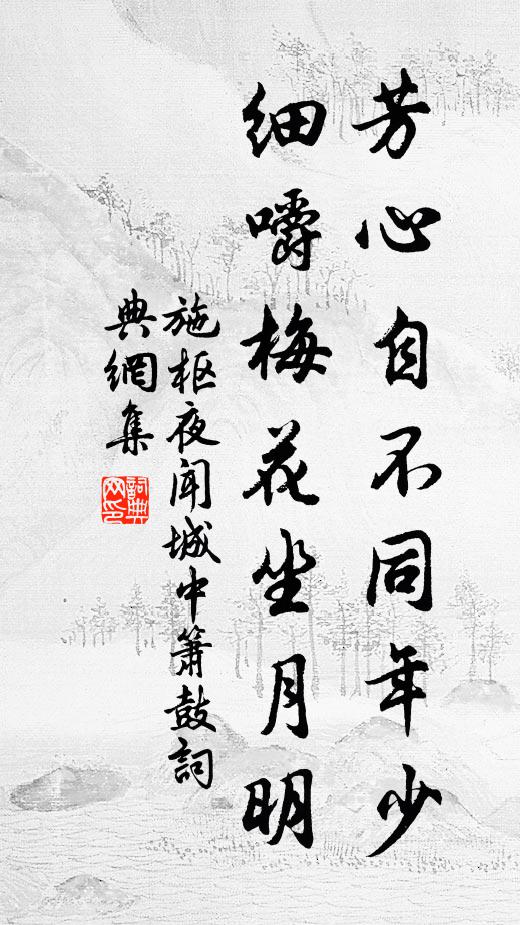 芳心自不同年少
细嚼梅花坐月明
施枢夜闻城中箫鼓词
典網集
詞典网印